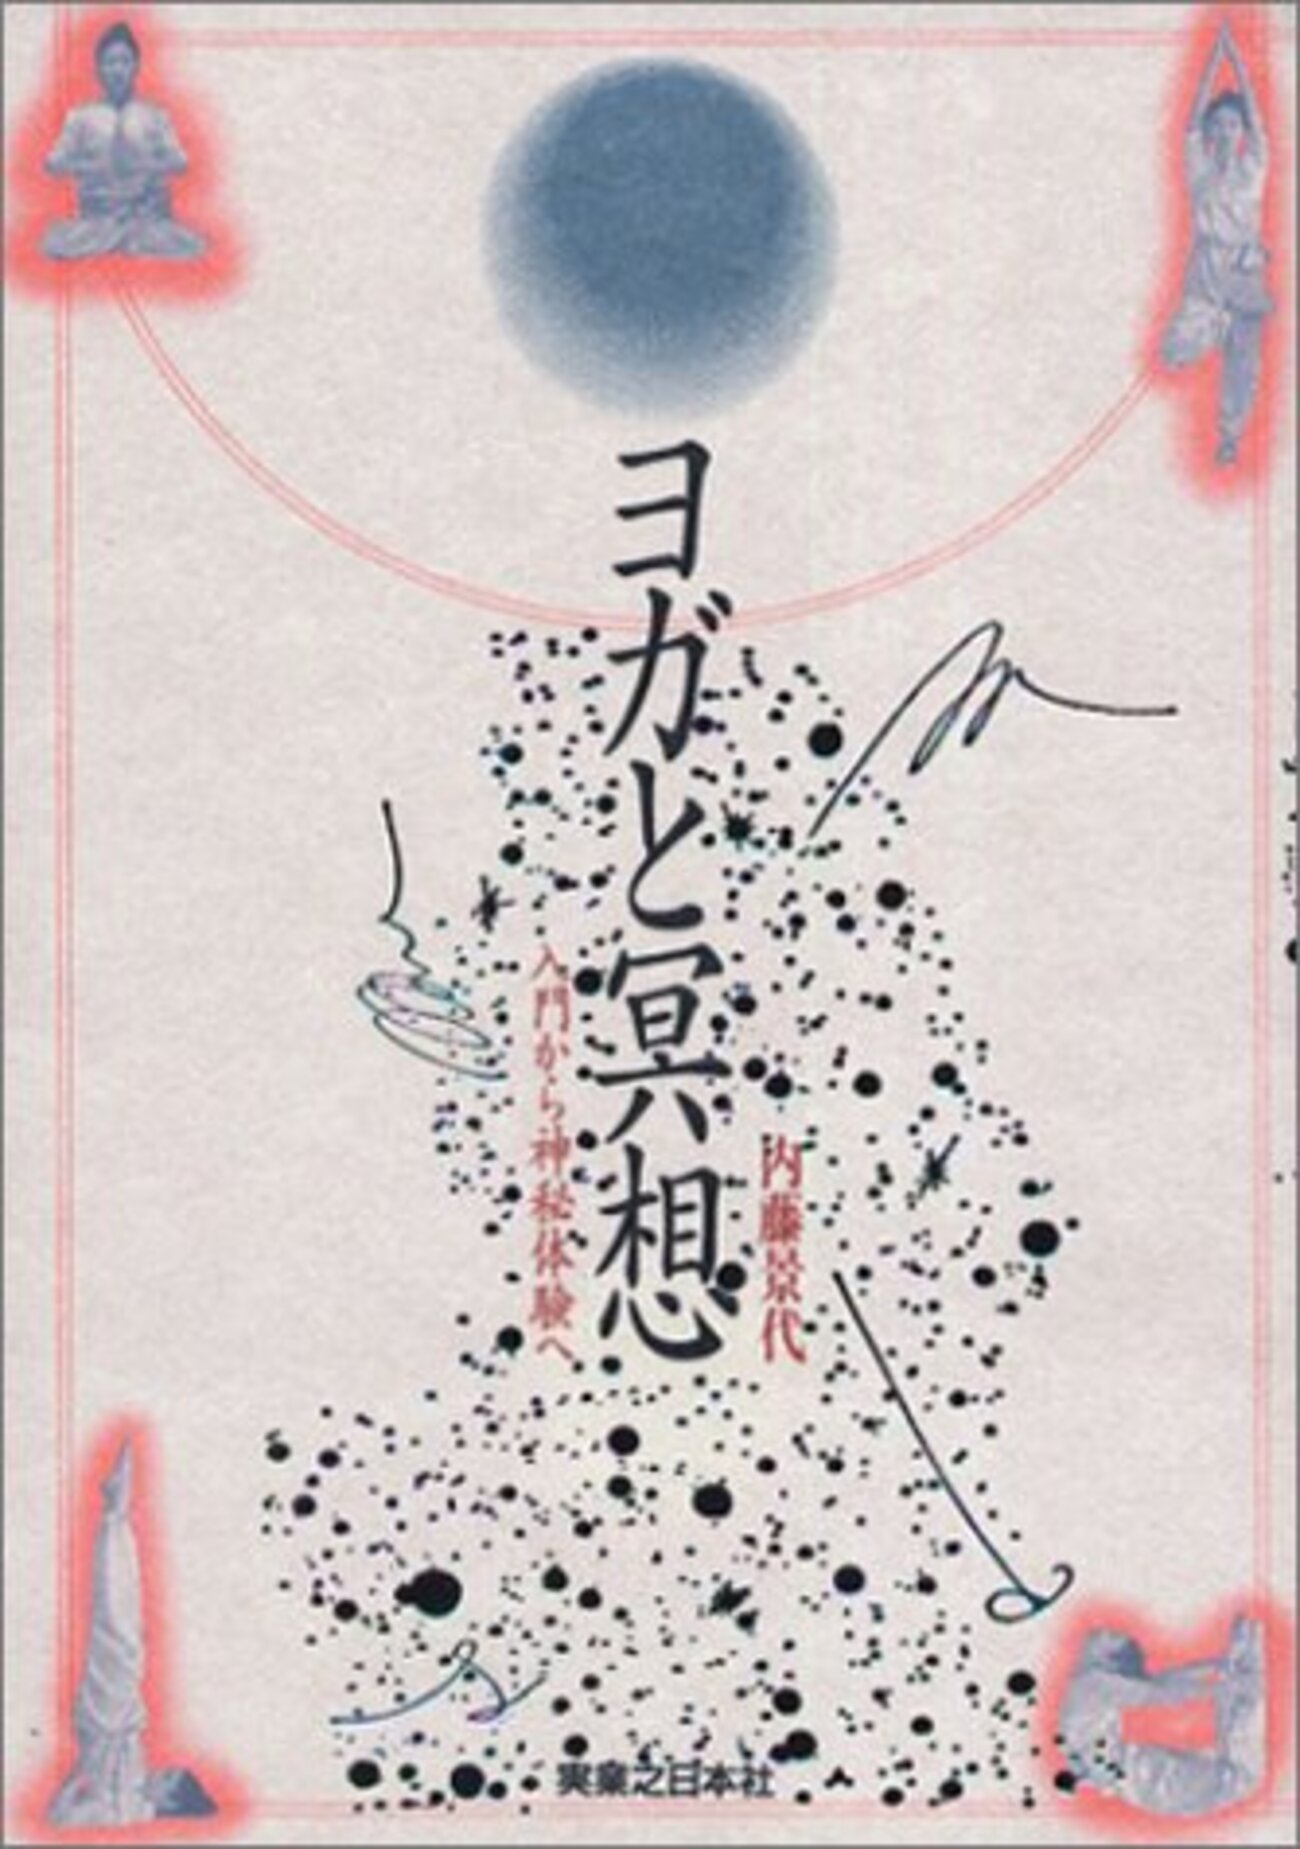 内藤景代
ヨガと冥想
入門から神秘体験へ
実業之日本社